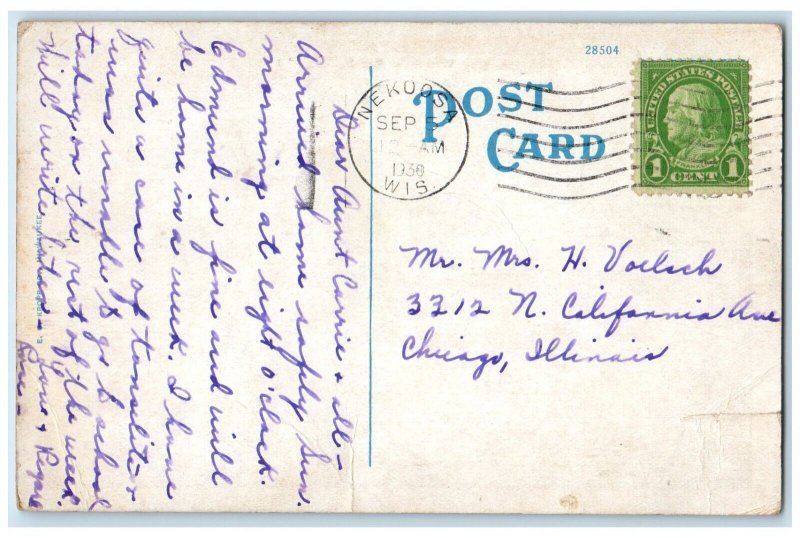 28504
POST
CARD
NEKOOSA
SEP 5
12-AM
1938
WIS.
UNITED STATES POSTAGE
FRANKLIN
1 CENT 1
Dear Aunt Carrie & all—
Arrived home safely Sun.
morning at eight o'clock.
Edmund is fine and will
be home in a week. I have
quite a case of tonsilitis &
was unable to go to school
today or the rest of the week.
Will write later— Love & Regards
Mr. Mrs. H. Voelsch
3312 N. California Ave
Chicago, Illinois